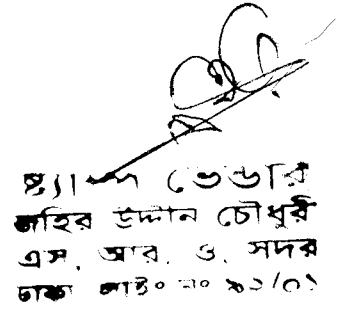 ষ্ট্যাম্প ভেন্ডার
জহির উদ্দীন চৌধুরী
এস, আর, ও, সদর
ঢাকা লাইঃ নং